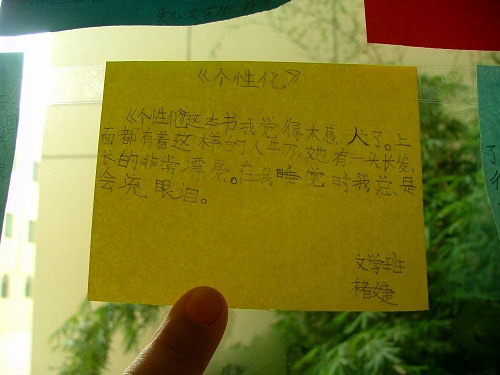 《个性化》
《个性化》这本书我觉得太感人了。上
面都有着这样 人 她有一头长发,
长的非常漂亮。在我睡觉时我总是
会流眼泪。
文学班
褚婕